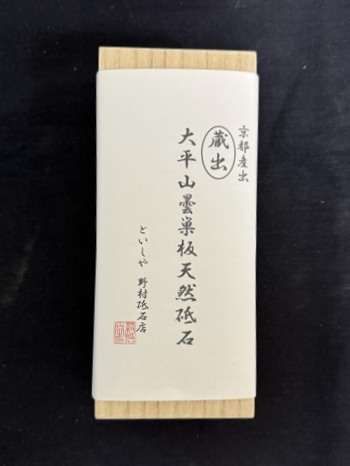 京都産出
蔵出
大平山曇巣板天然砥石
といしや 野村砥石店